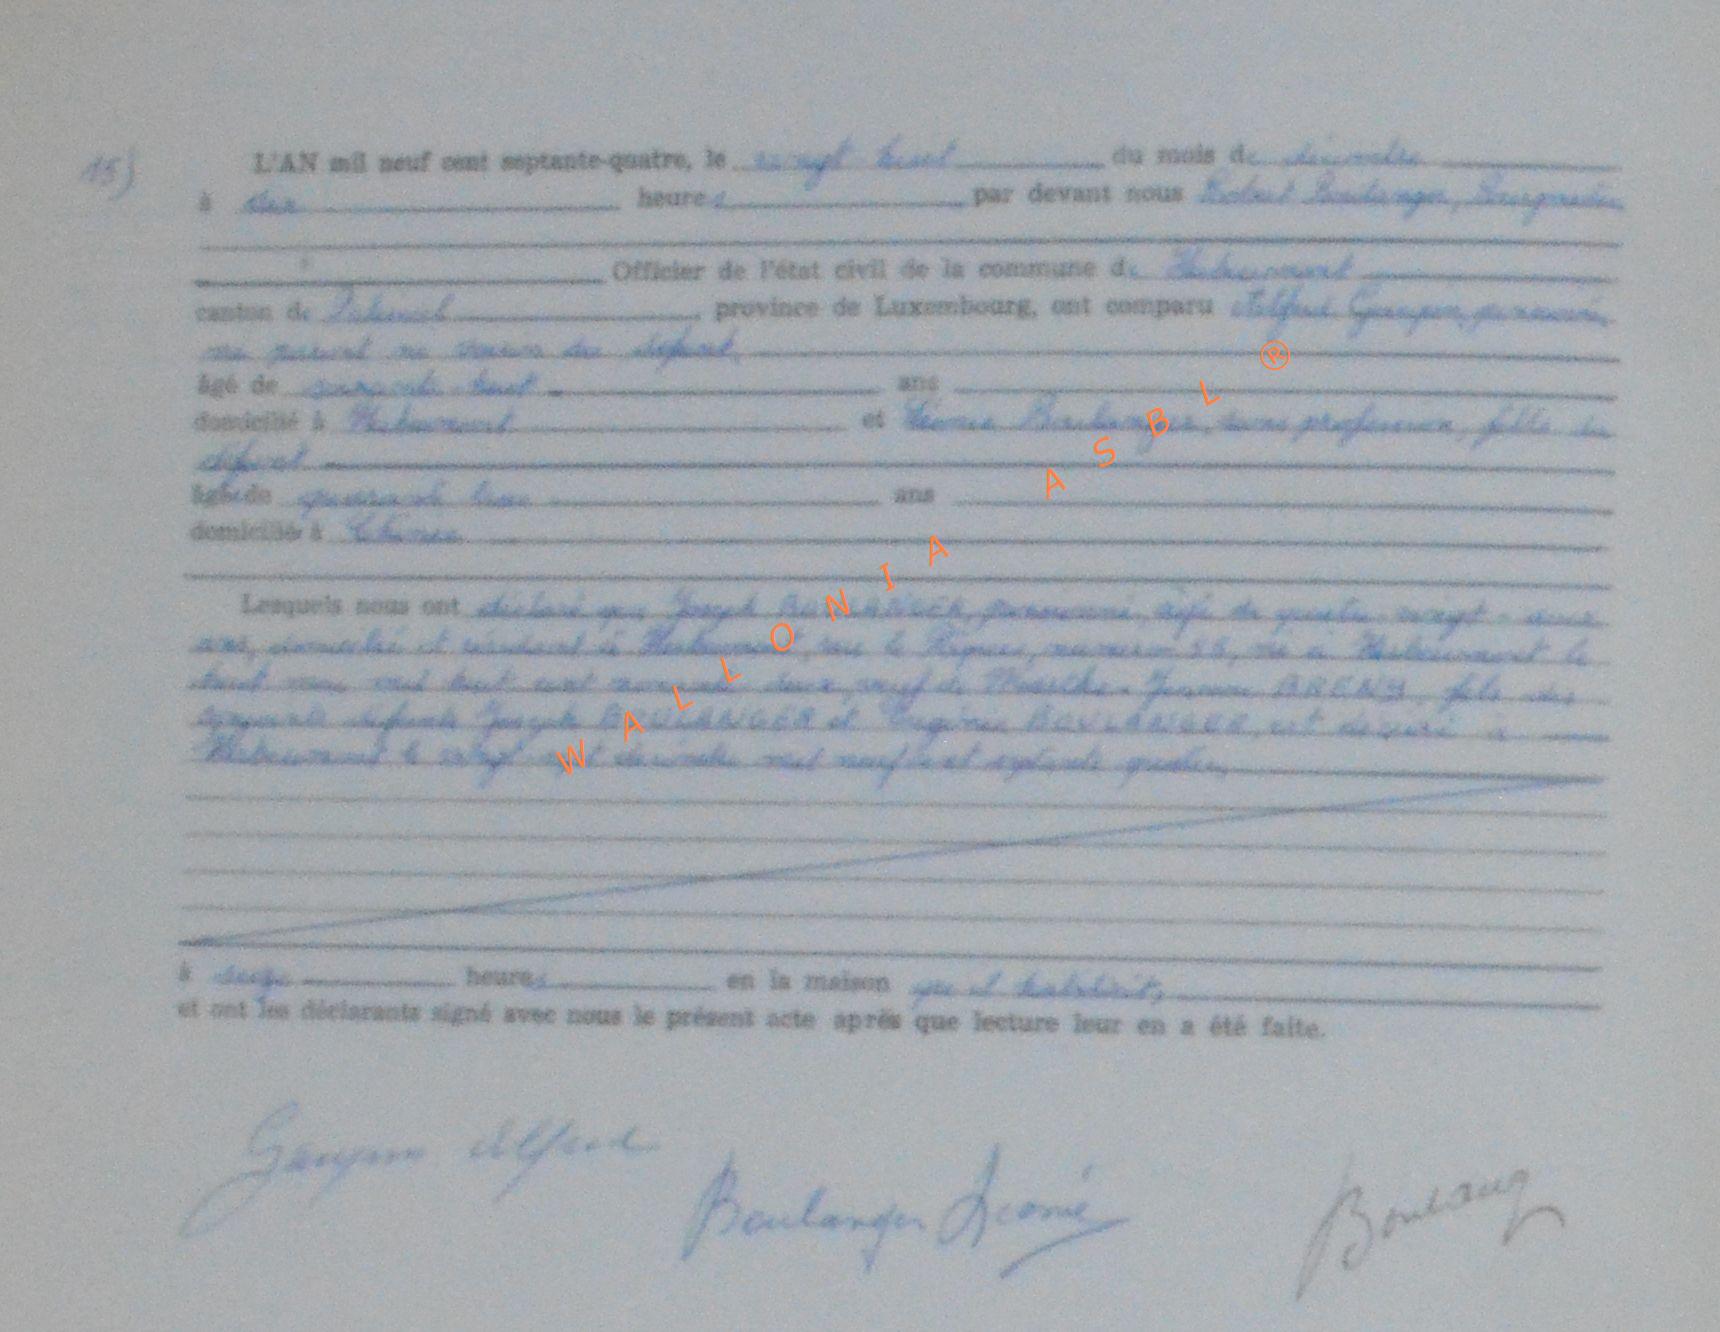 15)
L'AN mil neuf cent septante-quatre, le vingt huit du mois de décembre
à dix heures par devant nous Robert Boulanger, Bourgmestre
Officier de l'état civil de la commune de Herbeumont
canton de Paliseul, province de Luxembourg, ont comparu Alfred Gaupin, pensionné,
ni parent ni voisin du défunt,
âgé de soixante huit ans
domicilié à Herbeumont et Léonie Boulanger, sans profession, fille du
défunt
âgé de quarante ans
domicilié à
Lesquels nous ont déclaré que Joseph BOULANGER, pensionné, âgé de quatre-vingt-
ans, domicilié et résidant à Herbeumont, rue le numéro né à Herbeumont le
huit mai mil huit cent nonante deux, veuf de Marthe ARENS, fils des
conjoints défunts Joseph BOULANGER et Eugénie BOULANGER, est décédé à
Herbeumont le vingt sept décembre mil neuf cent septante quatre,
à seize heures en la maison qu'il habitait,
et ont les déclarants signé avec nous le présent acte après que lecture leur en a été faite.
Alfred
Boulanger Léonie
WALLONIA ASBL ®